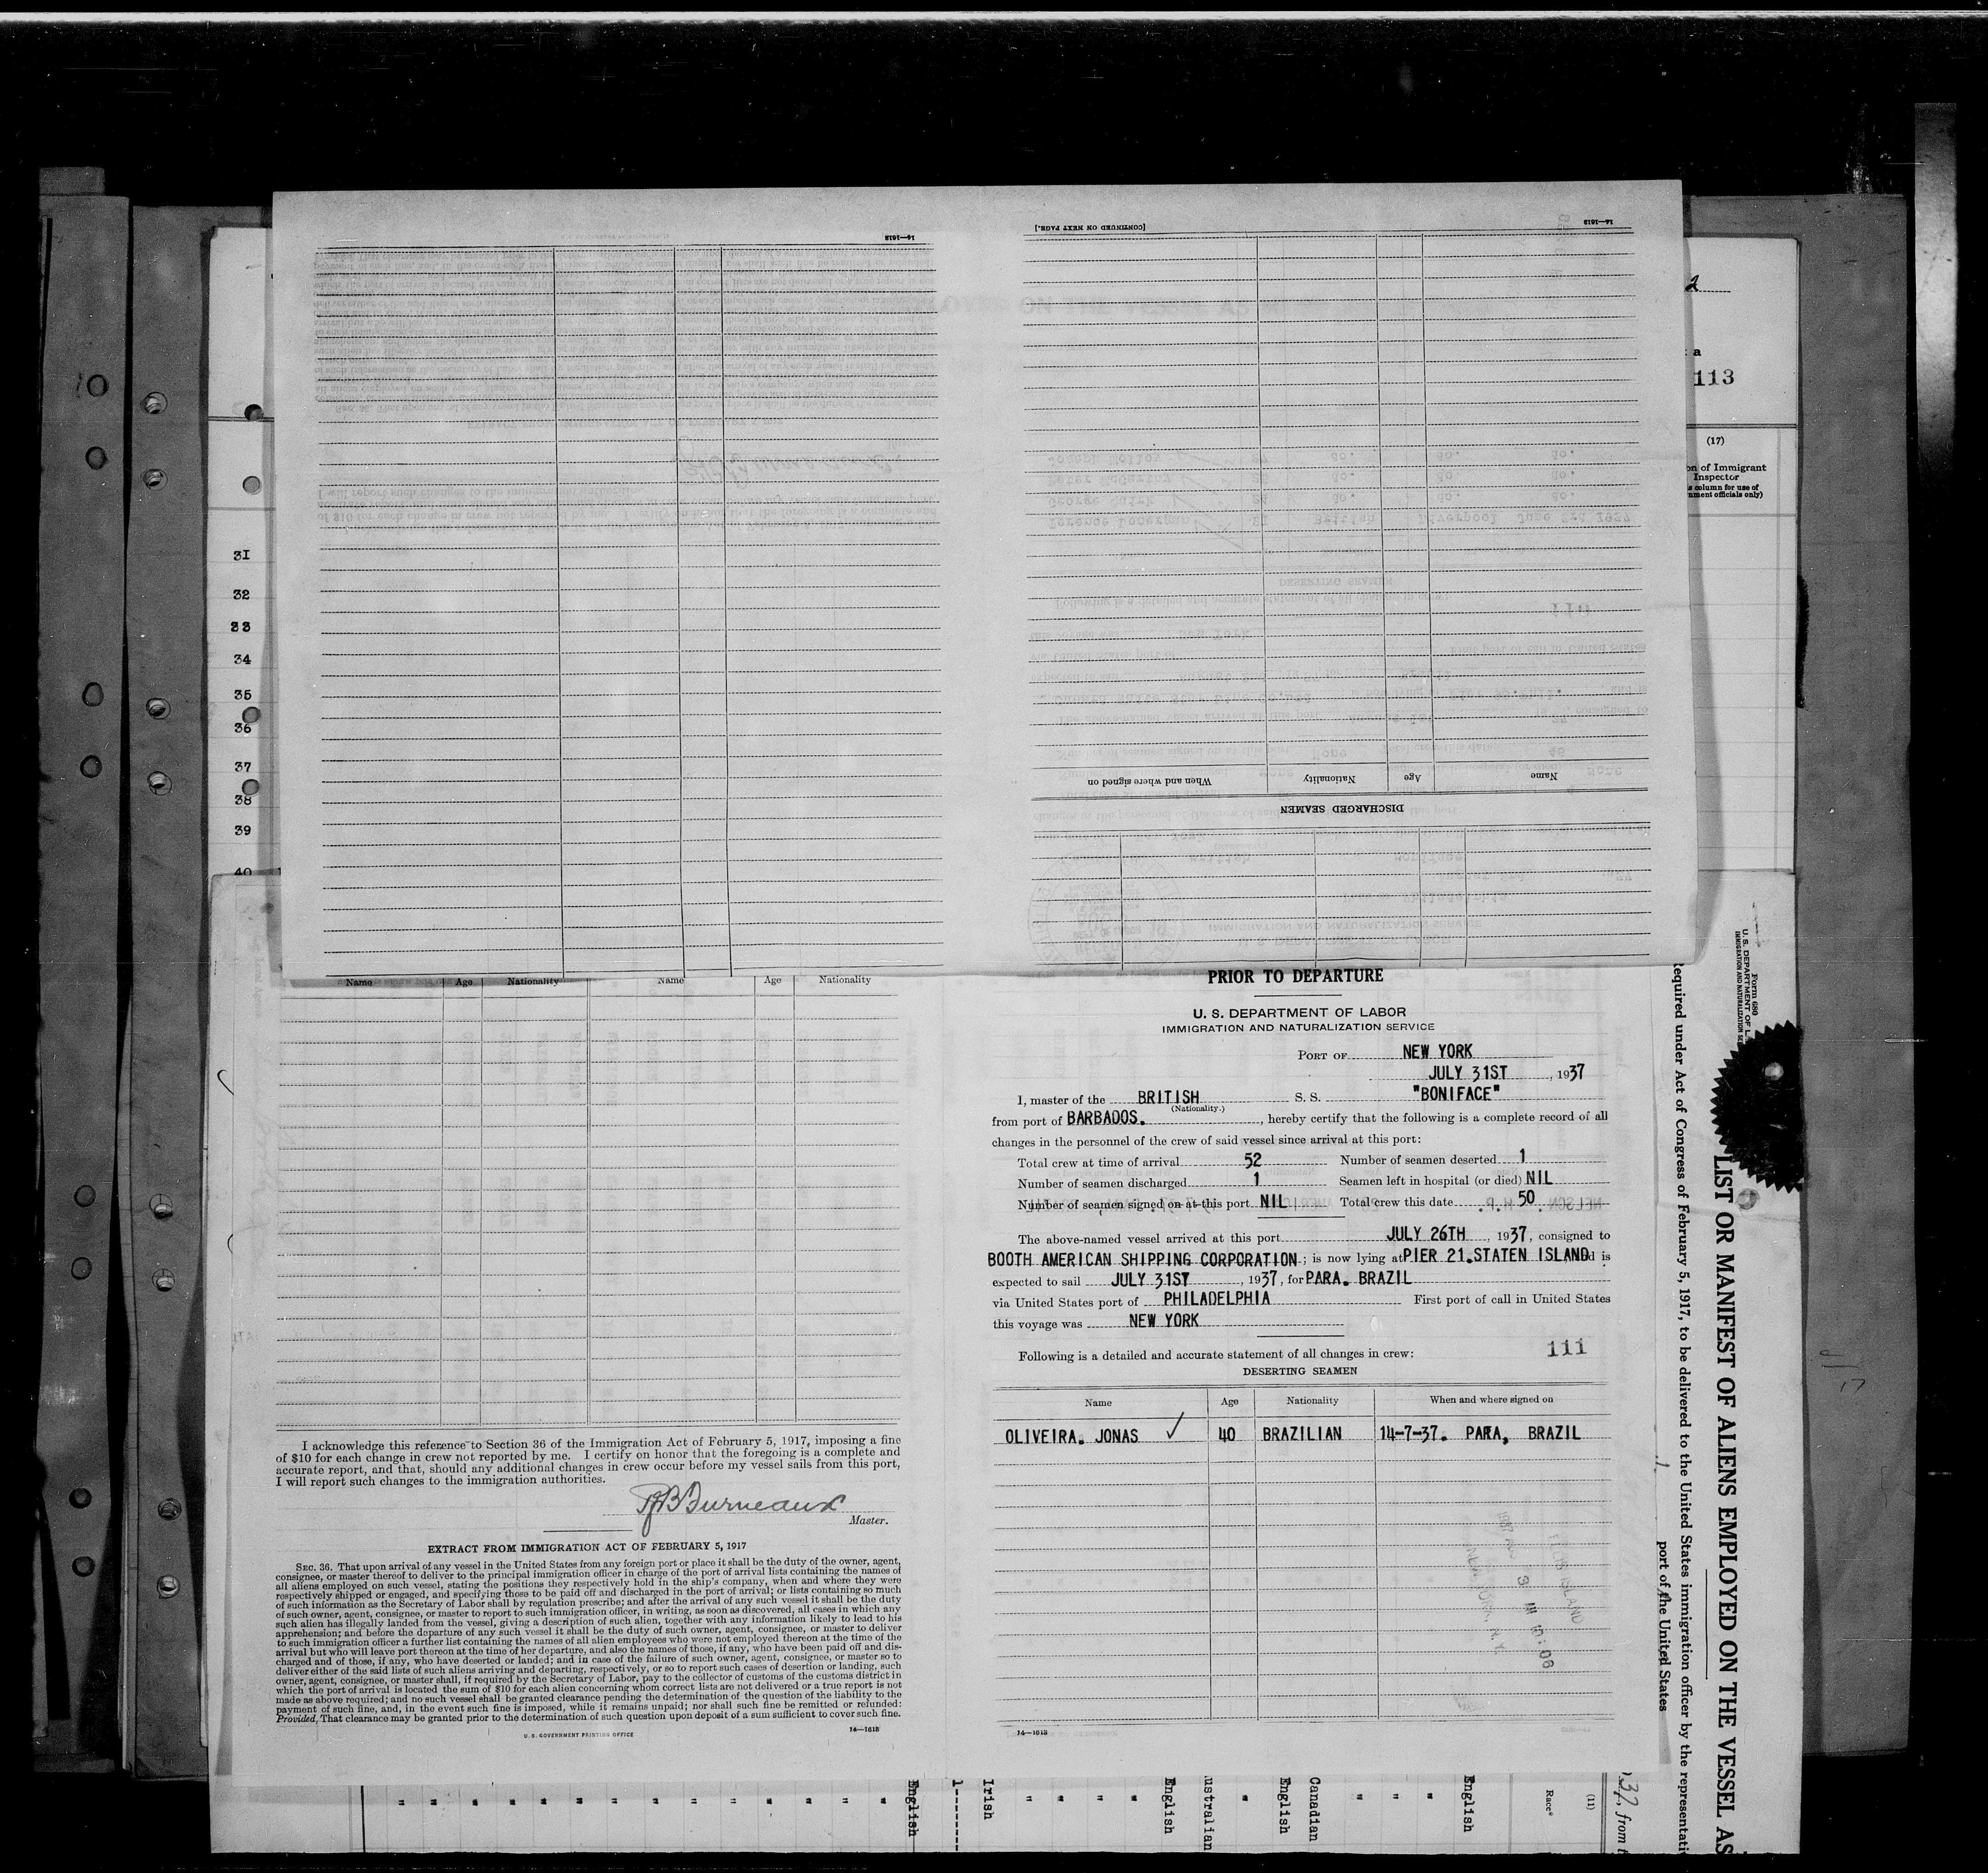 [CONTINUED ON NEXT PAGE.]
14—1618
14—1618
DISCHARGED SEAMEN
Name
Age
Nationality
When and where signed on
2
a
113
(17)
on of Immigrant
Inspector
31
32
33
34
35
36
37
38
39
40
Name Age Nationality Name Age Nationality
I acknowledge this reference to Section 36 of the Immigration Act of February 5, 1917, imposing a fine
of $10 for each change in crew not reported by me. I certify on honor that the foregoing is a complete and
accurate report, and that, should any additional changes in crew occur before my vessel sails from this port,
I will report such changes to the immigration authorities.
Master.
EXTRACT FROM IMMIGRATION ACT OF FEBRUARY 5, 1917
SEC. 36. That upon arrival of any vessel in the United States from any foreign port or place it shall be the duty of the owner, agent,
consignee, or master thereof to deliver to the principal immigration officer in charge of the port of arrival lists containing the names of
all aliens employed on such vessel, stating the positions they respectively hold in the ship's company, when and where they were
respectively shipped or engaged, and specifying those to be paid off and discharged in the port of arrival; or lists containing so much
of such information as the Secretary of Labor shall by regulation prescribe; and after the arrival of any such vessel it shall be the duty
of such owner, agent, consignee, or master to report to such immigration officer, in writing, as soon as discovered, all cases in which any
such alien has illegally landed from the vessel, giving a description of such alien, together with any information likely to lead to his
apprehension; and before the departure of any such vessel it shall be the duty of such owner, agent, consignee, or master to deliver
to such immigration officer a further list containing the names of all alien employees who were not employed thereon at the time of the
arrival but who will leave port thereon at the time of her departure, and also the names of those, if any, who have been paid off and dis-
charged and of those, if any, who have deserted or landed; and in case of the failure of such owner, agent, consignee, or master so to
deliver either of the said lists of such aliens arriving and departing, respectively, or so to report such cases of desertion or landing, such
owner, agent, consignee, or master shall, if required by the Secretary of Labor, pay to the collector of customs of the customs district in
which the port of arrival is located the sum of $10 for each alien concerning whom correct lists are not delivered or a true report is not
made as above required; and no such vessel shall be granted clearance pending the determination of the question of the liability to the
payment of such fine, and, in the event such fine is imposed, while it remains unpaid; nor shall such fine be remitted or refunded:
Provided, That clearance may be granted prior to the determination of such question upon deposit of a sum sufficient to cover such fine.
U. S. GOVERNMENT PRINTING OFFICE 14—1618
PRIOR TO DEPARTURE
U. S. DEPARTMENT OF LABOR
IMMIGRATION AND NATURALIZATION SERVICE
PORT OF NEW YORK
JULY 31ST, 1937
I, master of the BRITISH S. S. "BONIFACE"
(Nationality.)
from port of BARBADOS., hereby certify that the following is a complete record of all
changes in the personnel of the crew of said vessel since arrival at this port:
Total crew at time of arrival 52 Number of seamen deserted 1
Number of seamen discharged 1 Seamen left in hospital (or died) NIL
Number of seamen signed on at this port NIL Total crew this date 50
The above-named vessel arrived at this port JULY 26TH, 1937, consigned to
BOOTH AMERICAN SHIPPING CORPORATION; is now lying at PIER 21.STATEN ISLAND is
expected to sail JULY 31ST, 1937, for PARA. BRAZIL
via United States port of PHILADELPHIA First port of call in United States
this voyage was NEW YORK
Following is a detailed and accurate statement of all changes in crew: 111
DESERTING SEAMEN
Name Age Nationality When and where signed on
OLIVEIRA. JONAS ✓ 40 BRAZILIAN 14-7-37. PARA, BRAZIL
14—1618
Form 680
U. S. DEPARTMENT OF L
LIST OR MANIFEST OF ALIENS EMPLOYED ON THE VESSEL AS
required under Act of Congress of February 5, 1917, to be delivered to the United States immigration officer by the representati
port of the United States
37, from
(11)
Race*
English
" " "
Canadian
English
"
ustralian
English
" " " "
Irish
1-------
English
" " " " " " " " " " " " "